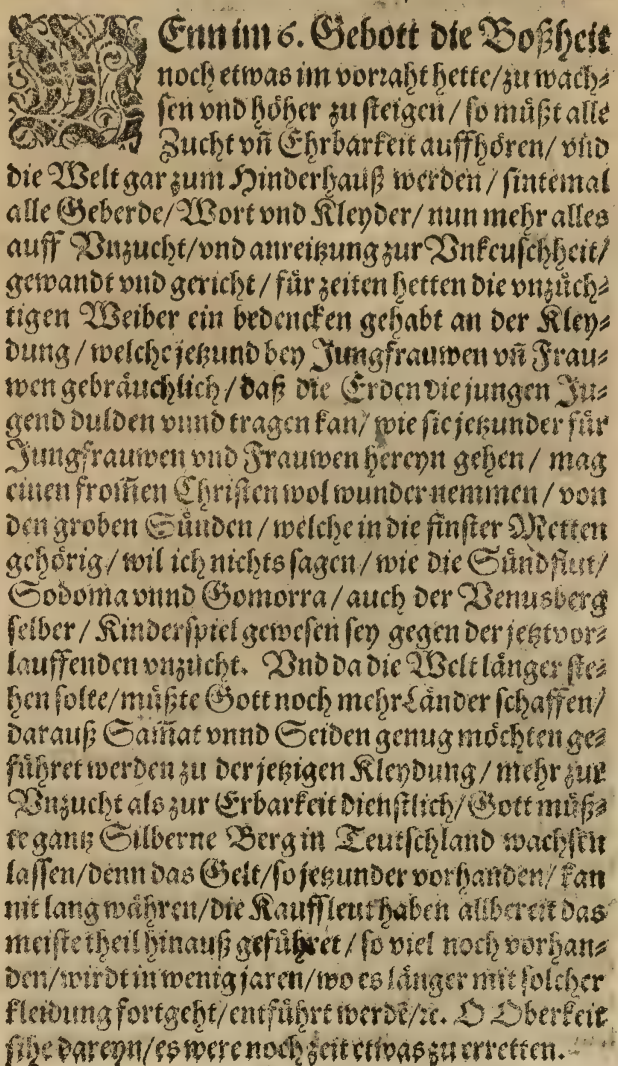 WEnn im 6. Gebott die Boßheit
noch etwas im vorraht hette/zu wach⸗
sen vnd höher zu steigen/so müßt alle
Zucht vñ Ehrbarkeit auffhören/vnd
die Welt gar zum Hinderhauß werden/sintemal
alle Geberde/Wort vnd Kleyder/nun mehr alles
auff Vnzucht/vnd anreitzung zur Vnkeuschheit/
gewandt vnd gericht/für zeiten hetten die vnzüch⸗
tigen Weiber ein bedencken gehabt an der Kley⸗
dung/welche jetzund bey Jungfrauwen vñ Frau⸗
wen gebräuchlich/daß die Erden die jungen Ju⸗
gend dulden vnnd tragen kan/wie sie jetzunder für
Jungfrauwen vnd Frauwen hereyn gehen/mag
einen from̃en Christen wol wunder nemmen/von
den groben Sünden/welche in die finster Metten
gehörig/wil ich nichts sagen/wie die Sündflut/
Sodoma vnnd Gomorra/auch der Venusberg
selber/Kinderspiel gewesen sey gegen der jetzt vor⸗
lauffenden vnzucht. Vnd da die Welt länger ste⸗
hen solte/müßte Gott noch mehr Länder schaffen/
darauß Sam̃at vnnd Seiden genug möchten ge⸗
führet werden zu der jetzigen Kleydung/mehr zur
Vnzucht als zur Erbarkeit dienstlich/Gott müß⸗
te gantz Silberne Berg in Teutschland wachsen
lassen/denn das Gelt/so jetzunder vorhanden/kan
nit lang währen/die Kauffleut haben allbereit das
meiste theil hinauß geführet/so viel noch vorhan⸗
den/wirdt in wenig jaren/wo es länger mit solcher
kleidung fortgeht/entführt werdẽ/ꝛc. O Oberkeit
sihe dareyn/es were noch zeit etwas zu erretten.